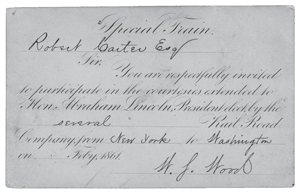 Special Train.
Robert Carter Esq
Sir.
You are respectfully invited
to participate in the courtesies extended to
Hon. Abraham Lincoln, President elect, by the
several Rail Road
Company, from New York to Washington
on Feby, 1861.
W. S. Wood